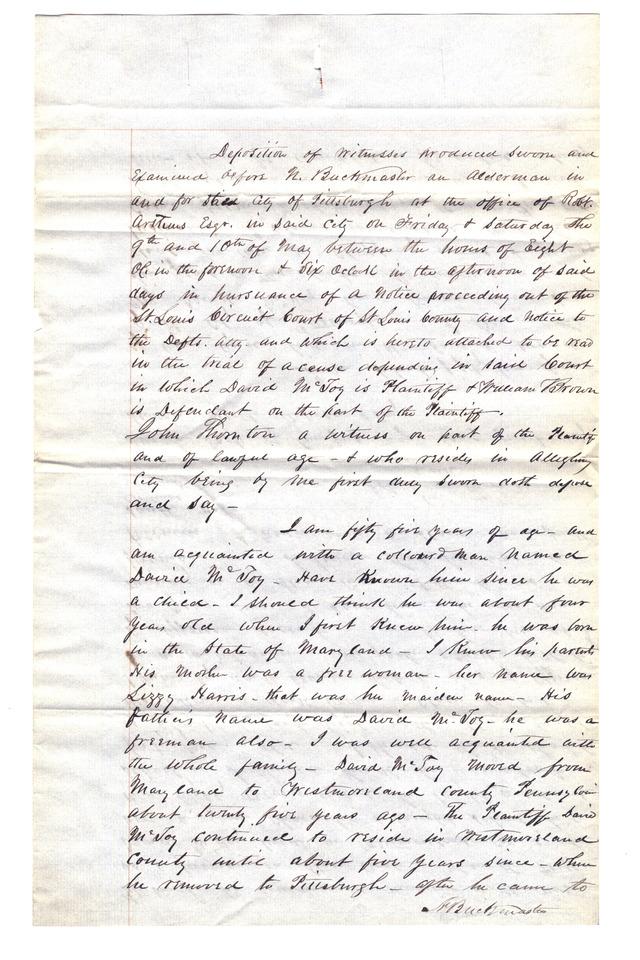 Deposition of witnesses produced sworn and
Examined before N. Buckmaster an Alderman in
and for the City of Pittsburgh at the office of Robt.
Arthurs Esqr. in said City on Friday & Saturday the
9th and 10th of May between the hours of Eight
Oc. in the forenoon & Six Oclock in the afternoon of said
days in pursuance of a Notice proceeding out of the
St. Louis Circuit Court of St Louis County and notice to
the Defts. atty. and which is hereto attached to be read
in the trial of a cause depending in said Court
in which David McFoy is Plaintiff & William Brown
is Defendant on the part of the Plaintiff.
John Thornton a witness on part of the Plaintiff
and of lawful age - & who resides in Allegheny
City being by me first duly sworn doth depose
and say -
I am fifty five years of age - and
am acquainted with a colloured man named
David McFoy - Have Known him since he was
a child - I should think he was about four
years old when I first Knew him. he was born
in the State of Maryland - I Knew his parents
His Mother was a free woman - her name was
Lizzy Harris - that was her maiden name - His
father's name was David McFoy - he was a
freeman also - I was well acquainted with
the whole family - David McFoy moved from
Maryland to Westmoreland county Pennsylva
about twenty five years ago - The Plaintiff David
McFoy continued to reside in Westmoreland
county until about five years since - when
he removed to Pittsburgh - after he came to
N Buckmaster